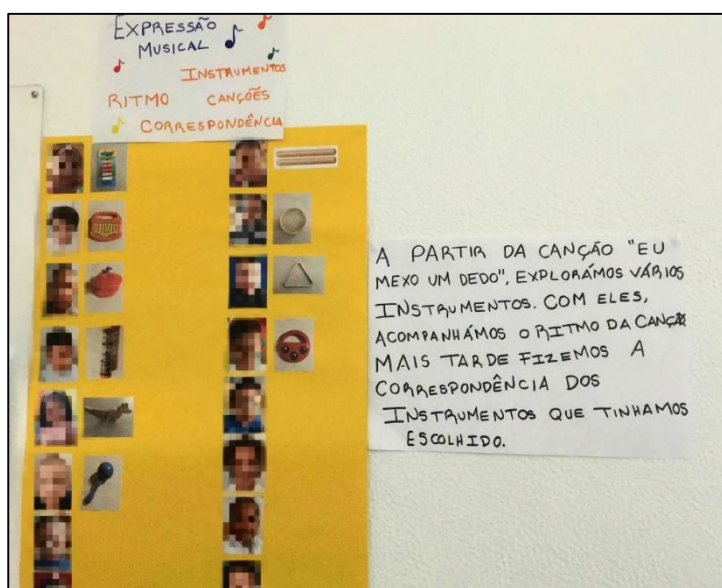 EXPRESSÃO
MUSICAL
INSTRUMENTOS
RITMO CANÇÕES
CORRESPONDÊNCIA
A PARTIR DA CANÇÃO "EU
MEXO UM DEDO", EXPLORÁMOS VÁRIOS
INSTRUMENTOS. COM ELES,
ACOMPANHÁMOS O RITMO DA CANÇÃO.
MAIS TARDE FIZEMOS A
CORRESPONDÊNCIA DOS
INSTRUMENTOS QUE TINHAMOS
ESCOLHIDO.